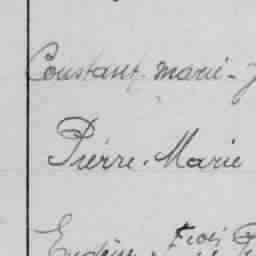 Constant Marie-J
Pierre-Marie
Frois
Eugène